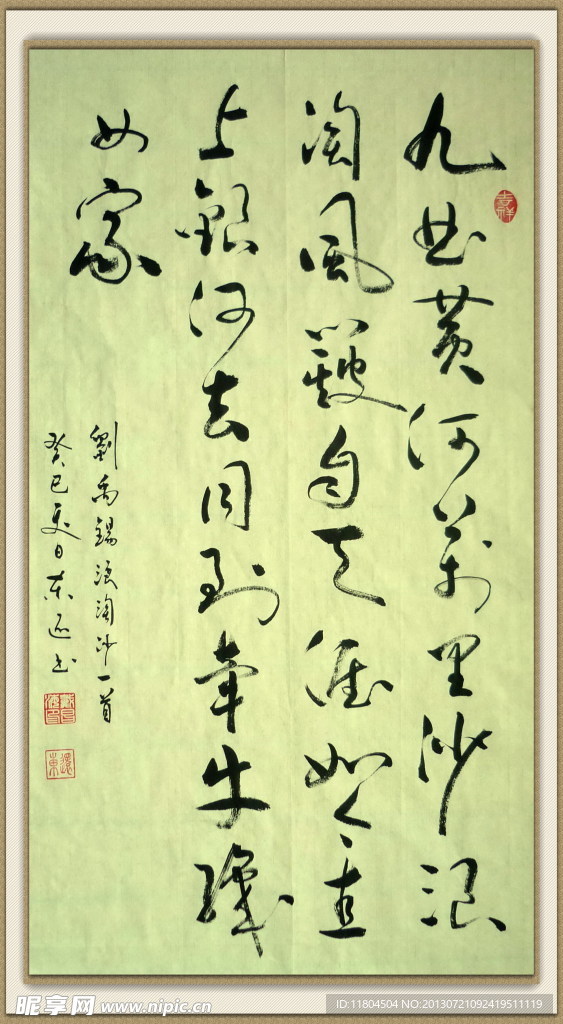 九曲黄河萬里沙浪
淘風簸自天涯如今直
上銀河去同到牽牛織
女家
劉禹錫浪淘沙一首
癸巳夏日東书
吉祥
昵享网 www.nipic.cn
ID:11804504 NO:20130721092419511119